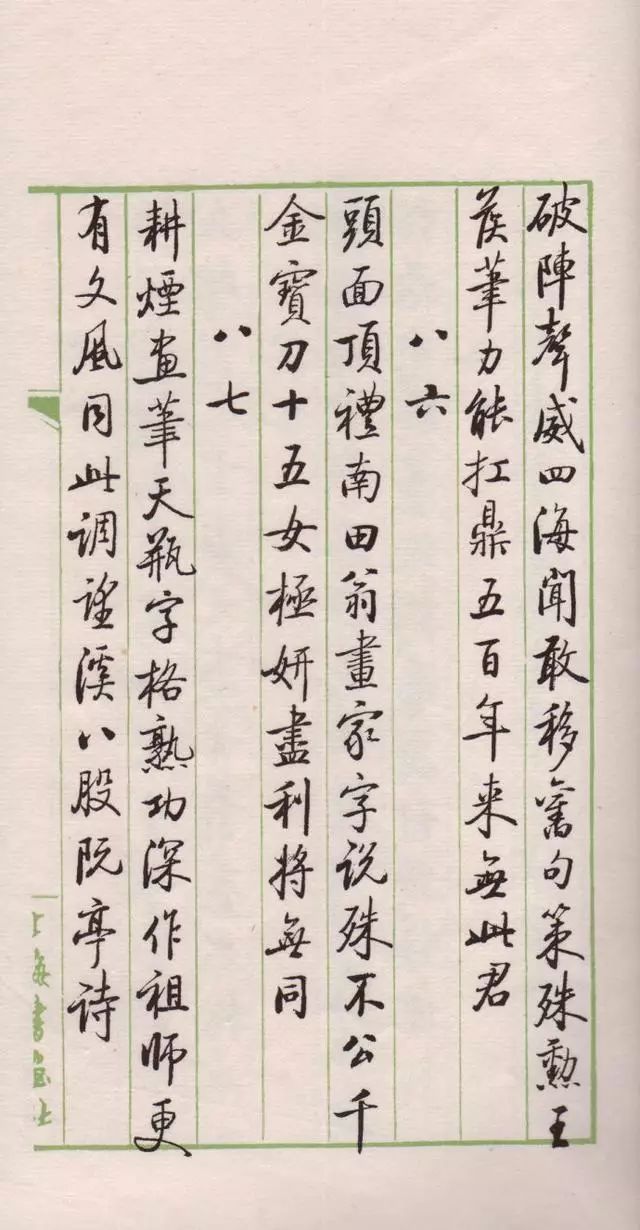 破陣聲威四海聞敢移舊句策殊勳王
侯筆力能扛鼎五百年来無此君
八六
頭面頂禮南田翁畫家字説殊不公千
金寶刀十五女極妍盡利將無同
八七
耕煙畫筆天瓶字格熟功深作祖師更
有文風同此調望溪八股阮亭詩
上海書畫社